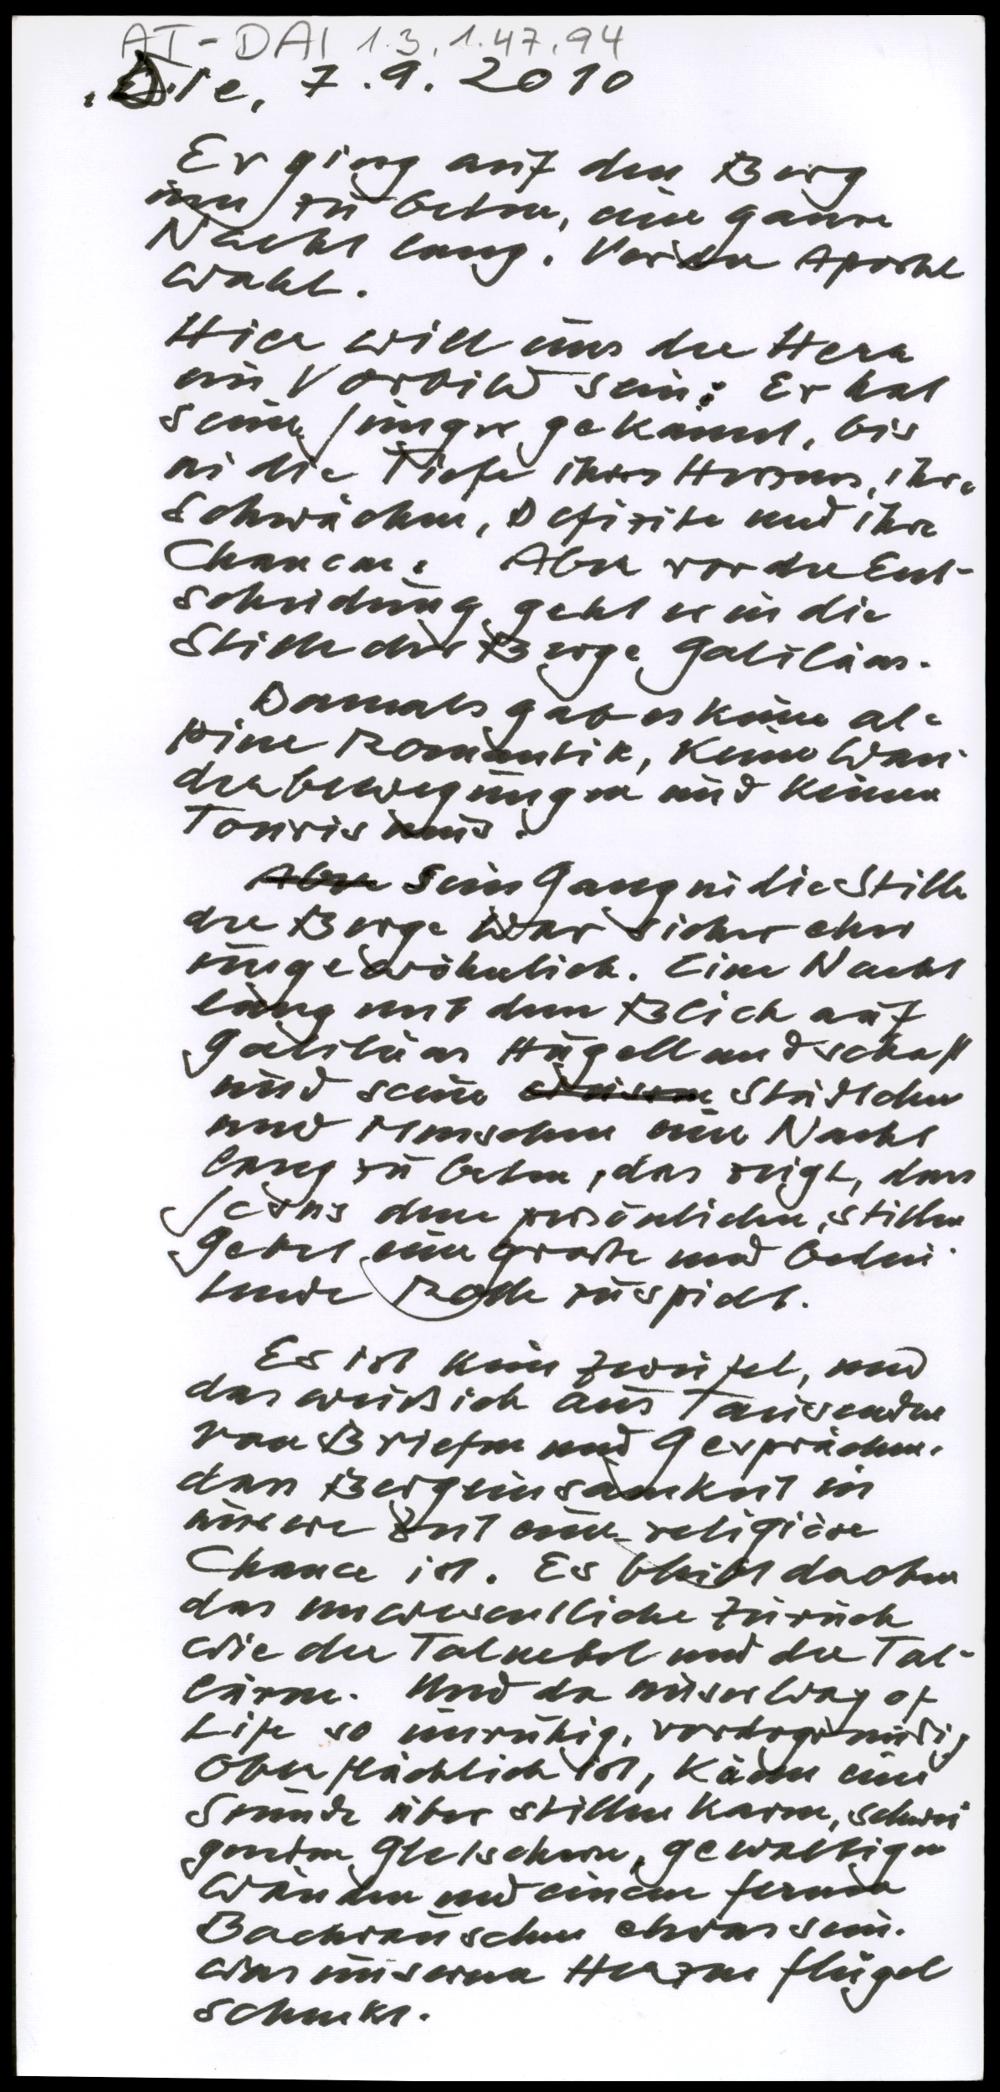 AT-DAI 1.3.1.47.94
Die, 7.9.2010
Er ging auf den Berg
um zu beten, eine ganze
Nacht lang. Vor der Apostel
wahl.
Hier will uns der Herr
ein Vorbild sein: Er hat
seine Jünger gekannt, bis
in die Tiefe ihres Herzens, ihre
Schwächen, Defizite und ihre
Chancen. Aber vor der Ent-
scheidung geht er in die
Stille der Berge Galiläas.
Damals gab es keine al-
pine Romantik, keine Wan-
derbewegungen und keinen
Tourismus.
Aber Sein Gang in die Stille
der Berge war sicher eher
ungewöhnlich. Eine Nacht
lang mit dem Blick auf
Galiläas Hügellandschaft
und seine Städtchen
und Menschen eine Nacht
lang zu beten, das zeigt, dass
Jesus dem persönlichen, stillen
Gebet eine große und bedeu-
tende Rolle zuspielt.
Es ist kein Zweifel, und
das weiß ich aus Tausenden
von Briefen und Gesprächen,
dass Bergeinsamkeit in
unserer Zeit eine religiöse
Chance ist. Es bleibt da oben
das unwesentliche zurück
wie der Talnebel und der Tal-
lärm. Und da unser Way of
Life so unruhig, vordergründig
oberflächlich ist, kann eine
Stunde über stillen Karen, schwei-
genden Gletschern, gewaltigen
Wänden und einem fernen
Bachrauschen etwas sein,
was unseren Herzen Flügel
schenkt.